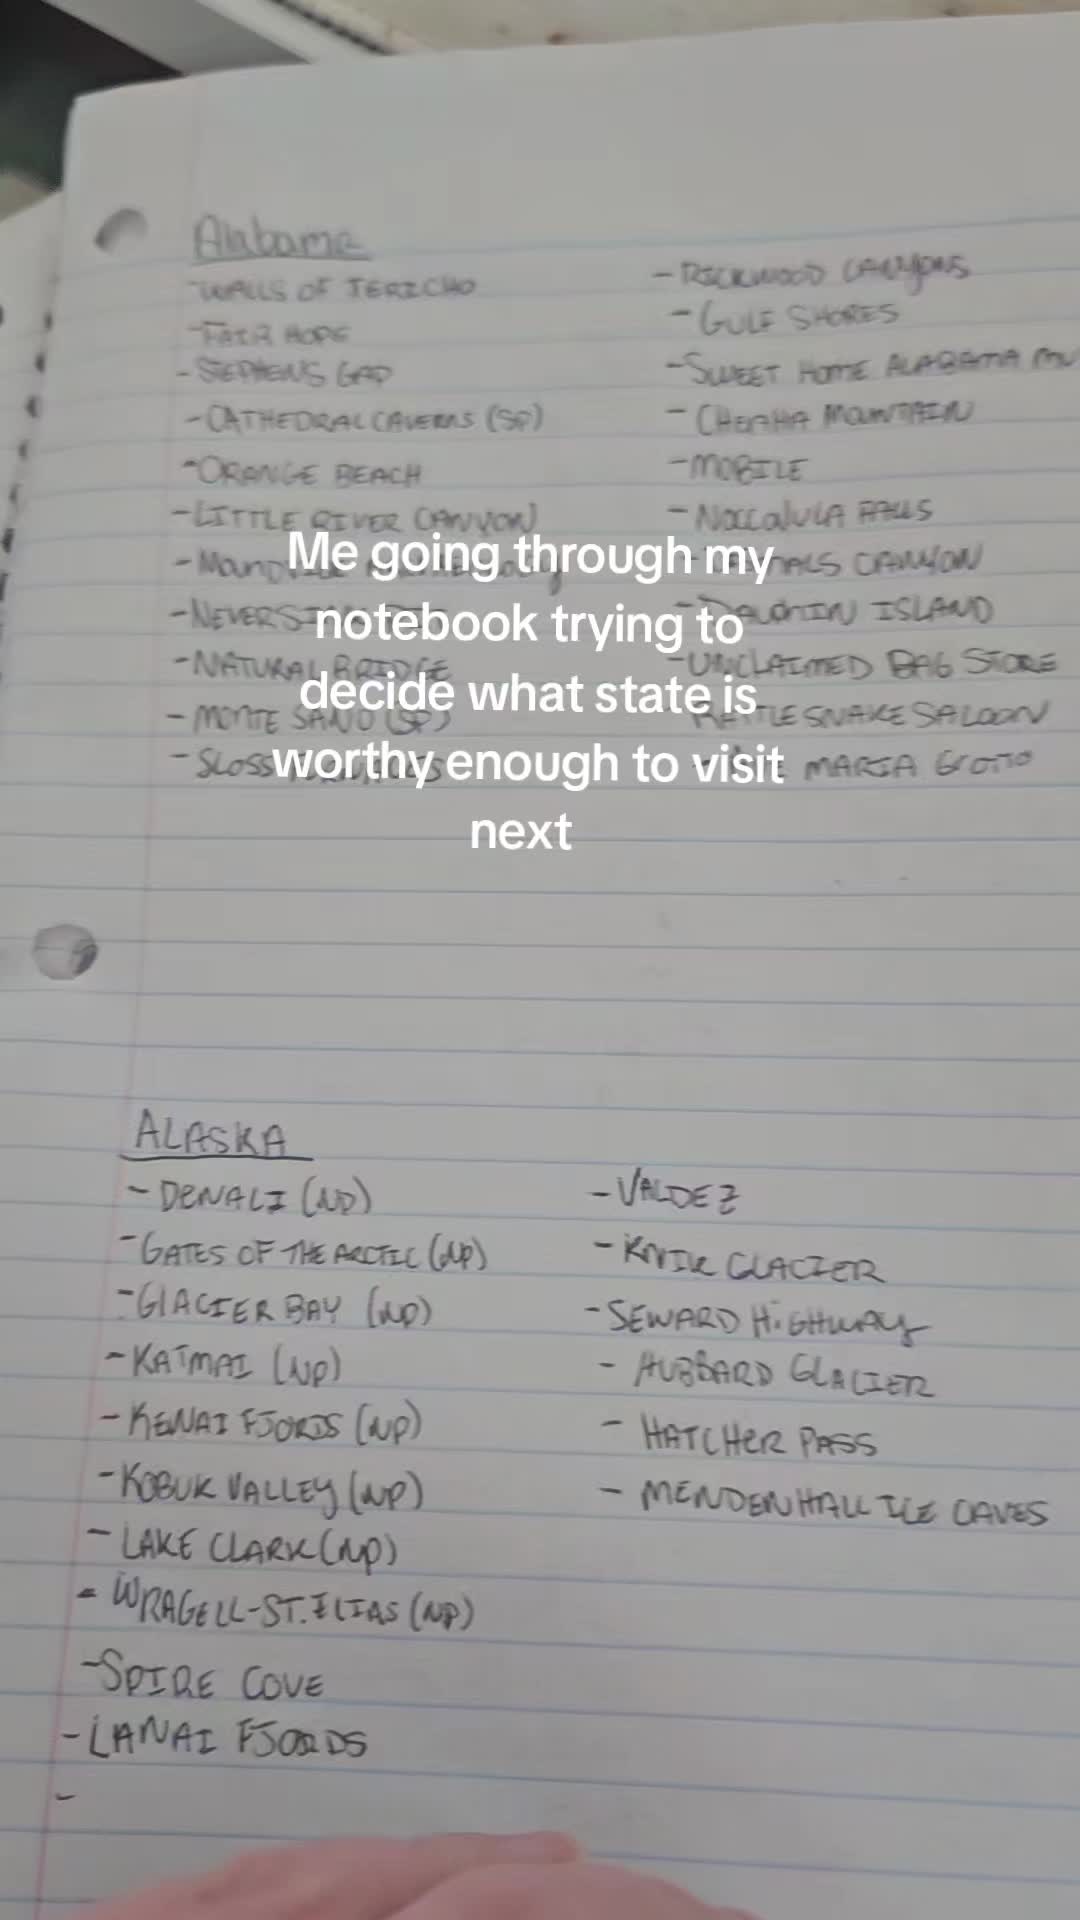 Alabama
-WALLS OF JERICHO
-FAIR HOPE
-STEPHENS GAP
-CATHEDRAL CAVERNS (SP)
-ORANGE BEACH
-LITTLE RIVER CANYON
-NATURAL BRIDGE
-MONTE SANO (SP)
-RICKWOOD CANYONS
-GULF SHORES
-SWEET HOME ALABAMA
-CHEAHA MOUNTAIN
-MOBILE
-NOCCALULA FALLS
CANYON
-DAUPHIN ISLAND
-UNCLAIMED BAG STORE
RATTLESNAKE SALOON
MARIA GROTTO
Me going through my
notebook trying to
decide what state is
worthy enough to visit
next
ALASKA
-DENALI (NP)
-GATES OF THE ARCTIC (NP)
-GLACIER BAY (NP)
-KATMAI (NP)
-KENAI FJORDS (NP)
-KOBUK VALLEY (NP)
-LAKE CLARK (NP)
-WRAGELL-ST. ELIAS (NP)
-SPIRE COVE
-LANAI FJORDS
-
-VALDEZ
-KNIK GLACIER
-SEWARD HIGHWAY
-HUBBARD GLACIER
-HATCHER PASS
-MENDENHALL ICE CAVES